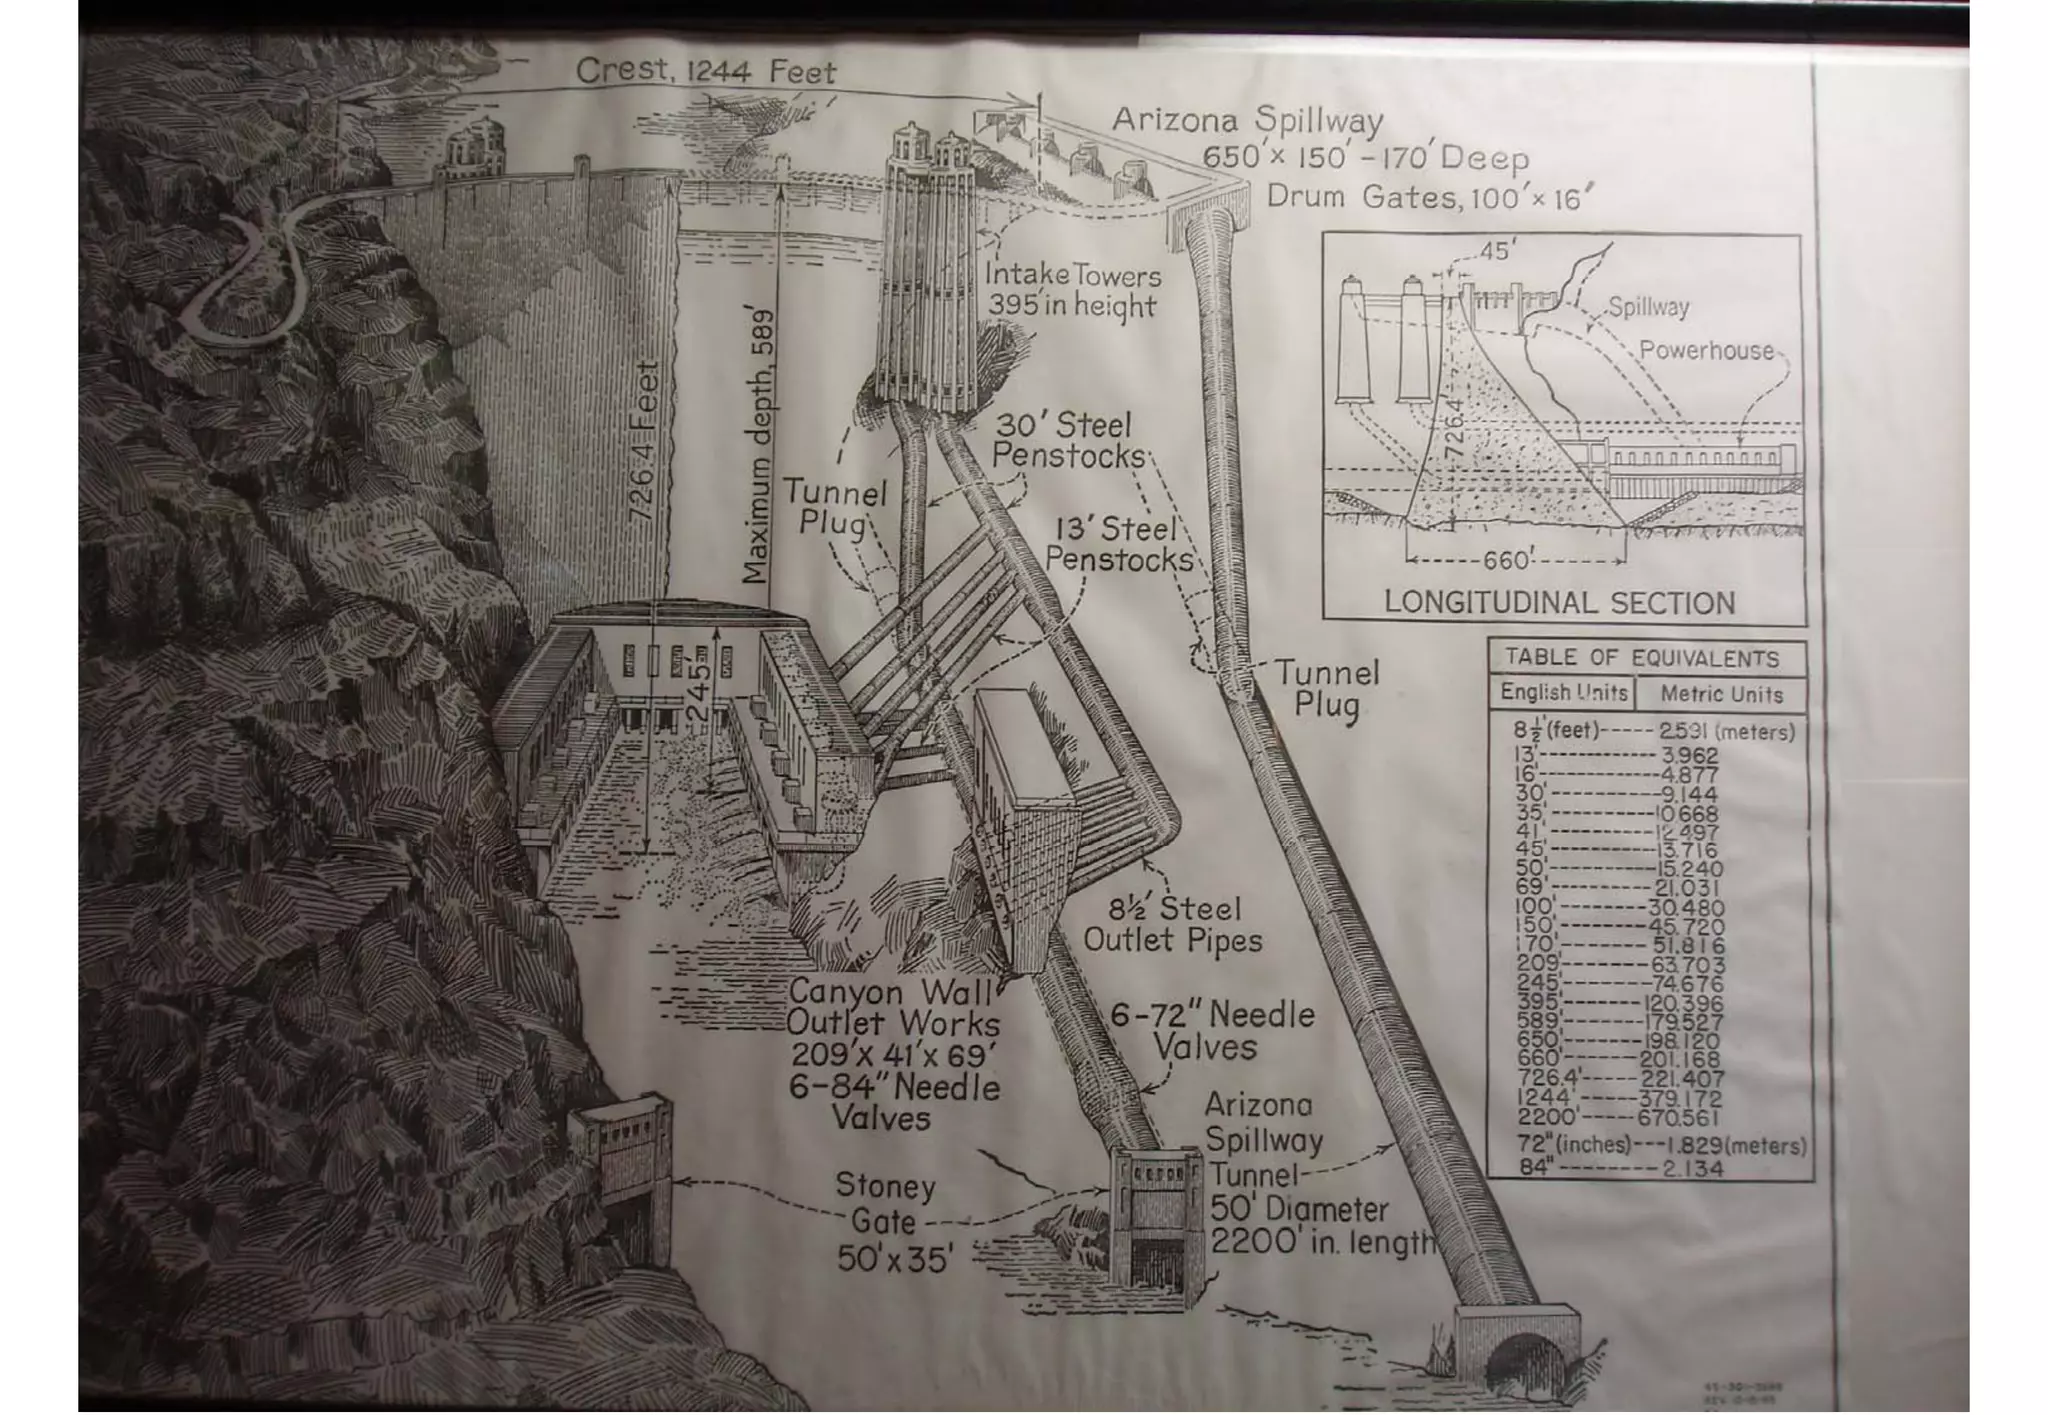 Crest, 1244 Feet
Arizona Spillway
650'x 150'-170' Deep
Drum Gates, 100'x 16'
Intake Towers
395' in height
726.4 Feet
Maximum depth, 589'
30' Steel
Penstocks
Tunnel
Plug
13' Steel
Penstocks
245'
Tunnel
Plug
8½' Steel
Outlet Pipes
Canyon Wall
Outlet Works
209'x 41'x 69'
6-84" Needle
Valves
6-72" Needle
Valves
Arizona
Spillway
Tunnel
50' Diameter
2200' in. length
Stoney
Gate
50'x 35'
45'
Spillway
Powerhouse
726.4'
660'
LONGITUDINAL SECTION
TABLE OF EQUIVALENTS
English Units Metric Units
8½'(feet)-----2.591 (meters)
13'-----------3.962
16'-----------4.877
30'-----------9.144
35'----------10.668
41'----------12.497
45'----------13.716
50'----------15.240
69'----------21.031
100'---------30.480
150'---------45.720
170'---------51.816
209'---------63.703
245'---------74.676
395'--------120.396
589'--------179.527
650'--------198.120
660'-------201.168
726.4'-----221.407
1244'------379.172
2200'-----670.561
72"(inches)---1.829(meters)
84"---------2.134